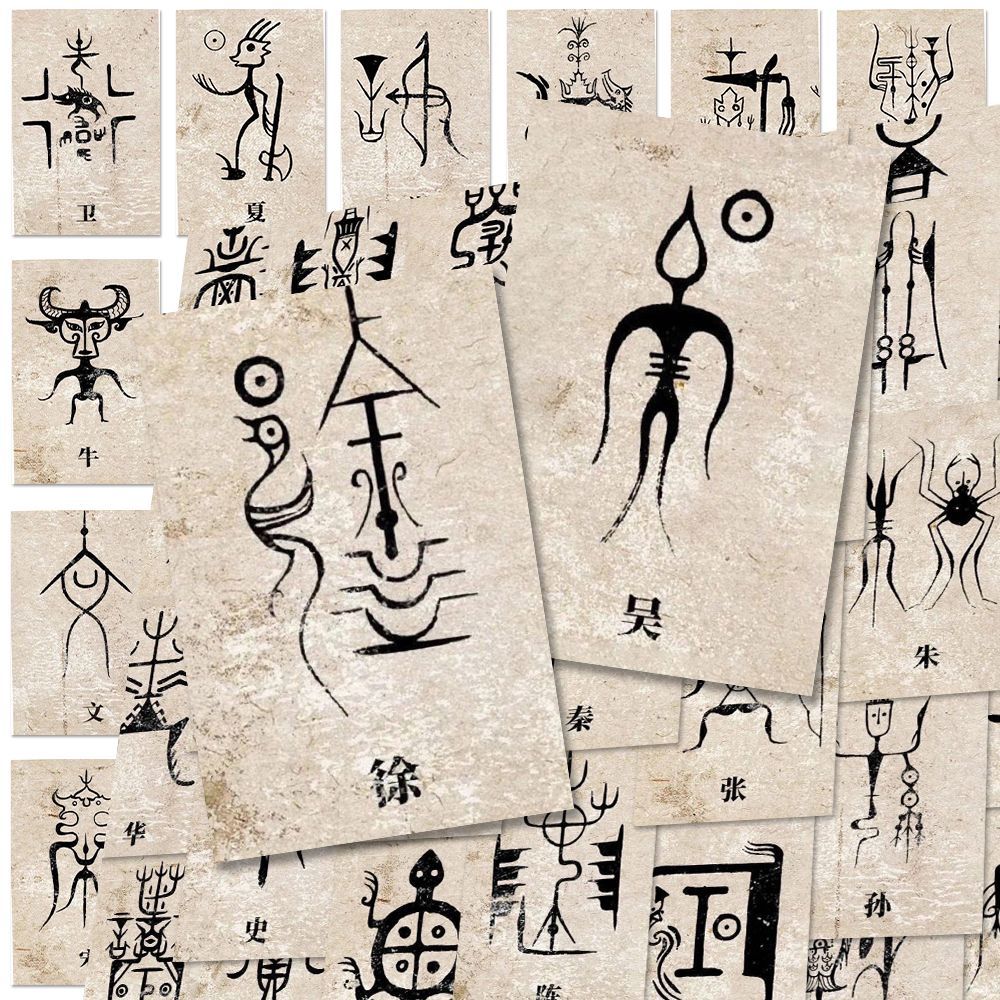 卫
夏
牛
吴
文
朱
秦
徐
张
华
孙
史